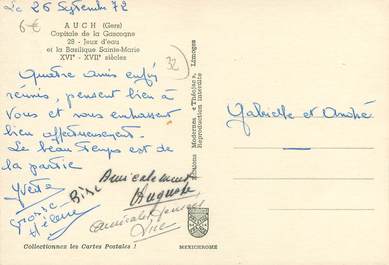 Le 26 Septembre 72
6€
AUCH (Gers)
Capitale de la Gascogne
28 - Jeux d'eau
et la Basilique Sainte-Marie
XVIᵉ - XVIIᵉ siècles
32
Quatre amis enfin
réunis, pensent bien à
Vous et vous embrassent
bien affectueusement.
Le beau temps est de
la partie
Yvette
Hélène
Bise
Amicalement
Auguste
Luc
Gabrielle et André
Editions Modernes « Théojac » Limoges
Reproduction interdite
Collectionnez les Cartes Postales !
MEXICHROME